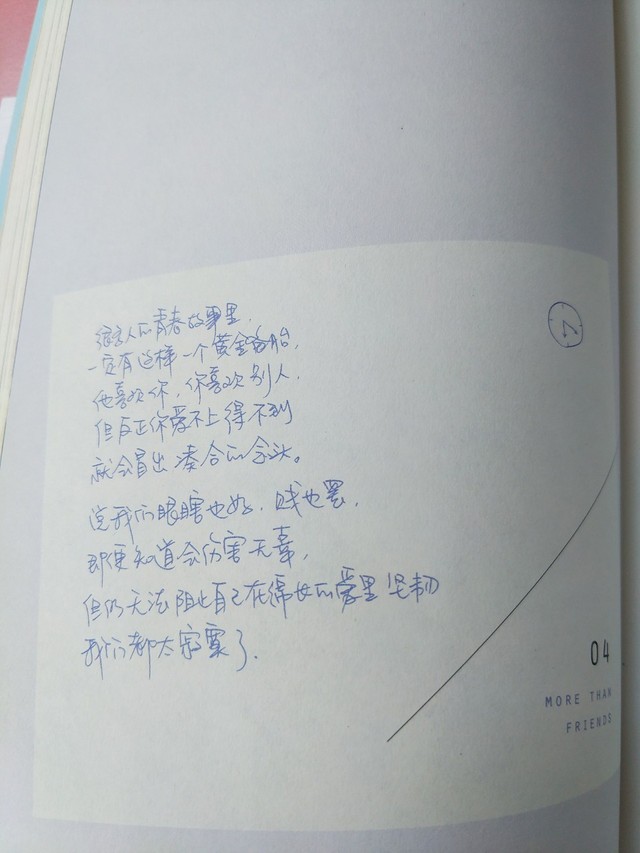 人的青春故事里,
一定有这样一个黄金备胎,
他喜欢你,你喜欢别人,
但反正你爱不上得不到
就会冒出凑合的念头。
说我们眼瞎也好,贱也罢,
即便知道会伤害无辜,
但仍无法阻止自己在的爱里坚韧
我们都太寂寞了.
04
MORE THAN
FRIENDS